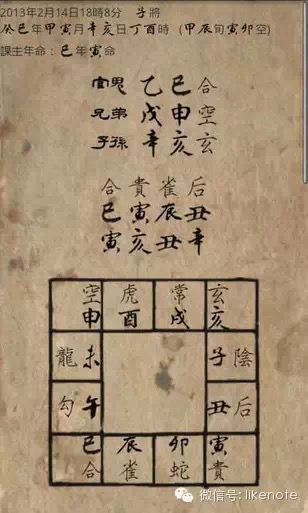 2013年2月14日18時8分 子將
癸巳年甲寅月辛亥日丁酉時 (甲辰旬寅卯空)
課主年命:巳年寅命
官鬼 乙巳合
兄弟 戊申空
子孫 辛亥玄
合貴雀后
巳寅辰丑
寅亥丑辛
空虎常玄
申酉戌亥
龍未 子陰
勾午 丑后
巳辰卯寅
合雀蛇貴
微信号: likenote